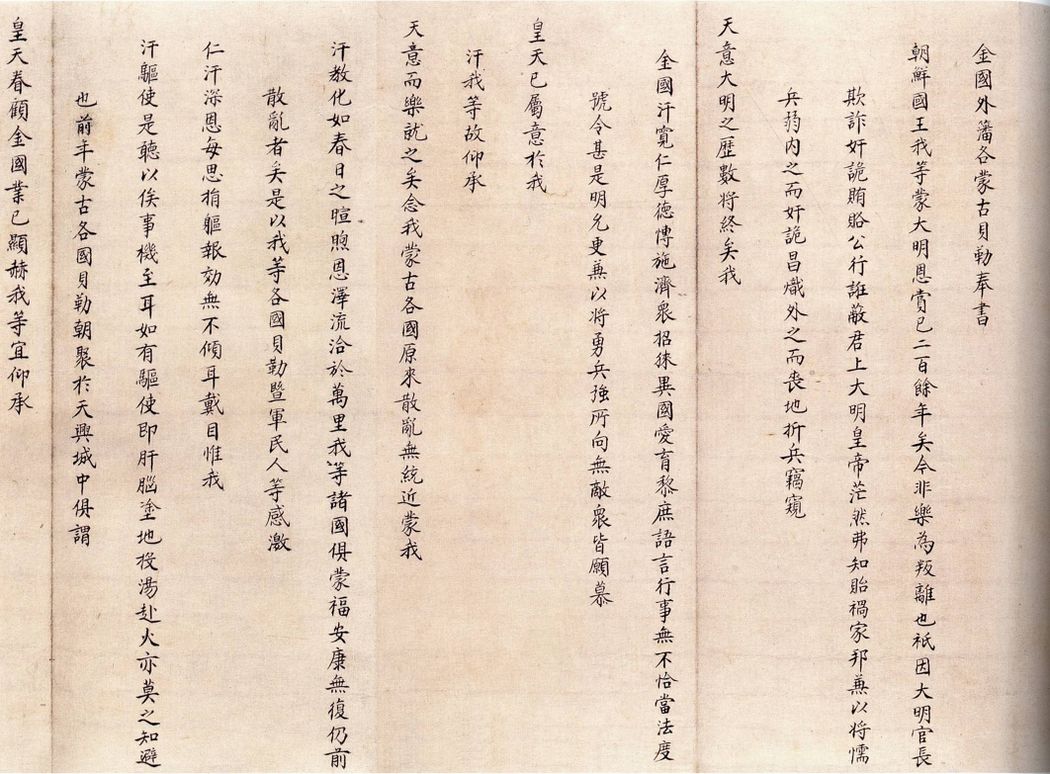 金國外籓各蒙古貝勒奉書
朝鮮國王我等蒙大明恩賞已二百餘年矣今非樂為叛離也祇因大明官長
欺詐奸詭賄賂公行誑蔽君上大明皇帝茫然弗知貽禍家邦兼以將懦
兵弱內之而奸詭昌熾外之而喪地折兵竊窺
天意大明之歷數將終矣我
金國汗寬仁厚德博施濟眾招徠異國愛育黎庶語言行事無不恰當法度
號令甚是明允更兼以將勇兵強所向無敵眾皆願慕
皇天已屬意於我
汗我等故仰承
天意而樂就之矣念我蒙古各國原來散亂無統近蒙我
汗教化如春日之暄煦恩澤流洽於萬里我等諸國俱蒙福安康無復仍前
散亂者矣是以我等各國貝勒暨軍民人等感激
仁汗深恩每思捐軀報効無不傾耳戴目惟我
汗驅使是聽以俟事機至耳如有驅使即肝腦塗地投湯赴火亦莫之知避
也前年蒙古各國貝勒朝聚於天興城中俱謂
皇天眷顧金國業已顯赫我等宜仰承